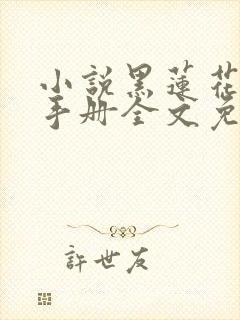 小説黑蓮花
手册全文免
許世友